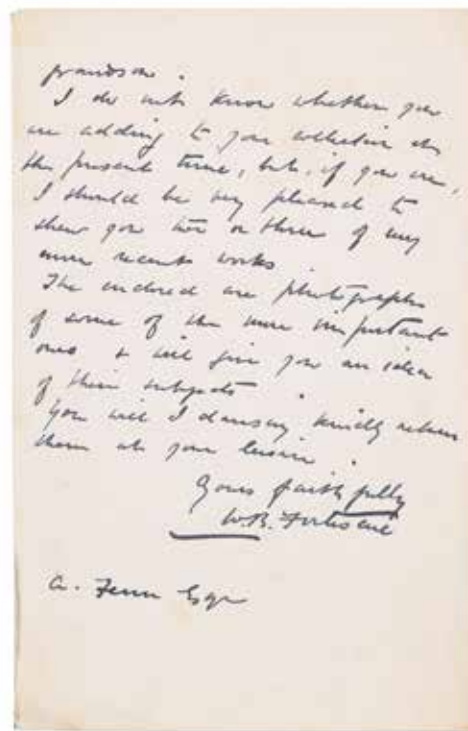 grandson.
I do not know whether you
are adding to your collection at
the present time, but, if you are,
I should be very pleased to
shew you two or three of my
more recent works.
The enclosed are photographs
of some of the more important
ones & will give you an idea
of their subjects.
You will I daresay kindly return
them at your leisure.
Yours faithfully
W.B. Fortescue
A. Fenn Esqr